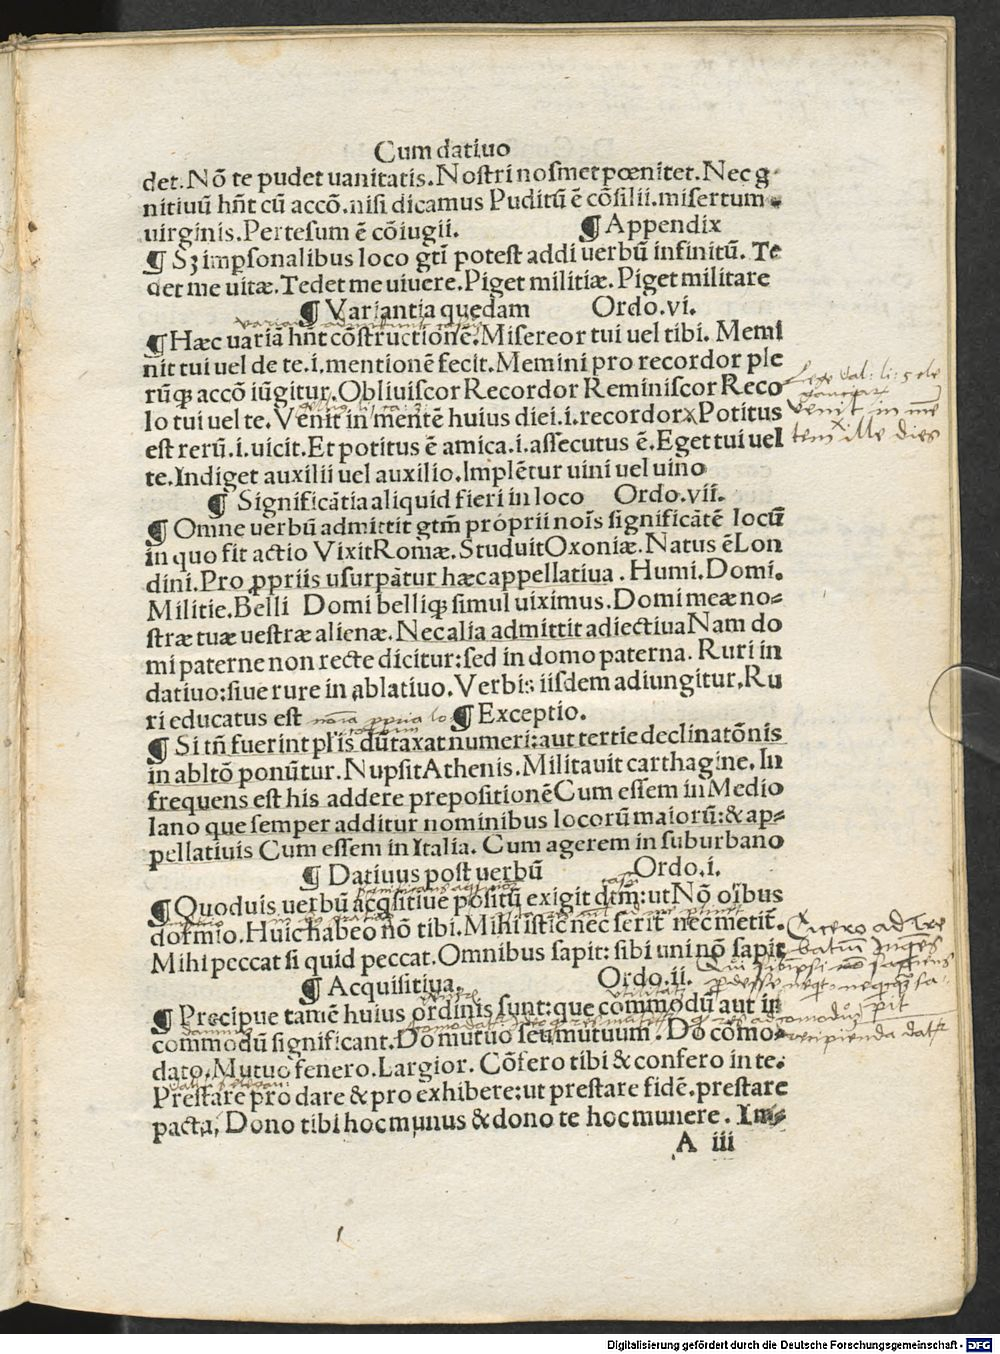 Cum datiuo
det. Nō te pudet uanitatis. Nostri nosmet pœnitet. Nec g
nitiuū hn̄t cū accō. nisi dicamus Puditū ē cōsilii. misertum
uirginis. Pertesum ē cōiugii. ¶ Appendix
¶ Sꝫ imꝑsonalibus loco gtī potest addi uerbū infinitū. Te
det me uitæ. Tedet me uiuere. Piget militiæ. Piget militare
¶ Variantia quedam Ordo. vi.
¶ Hæc uariā hn̄t cōstructionē. Misereor tui uel tibi. Memi
nit tui uel de te. i. mentionē fecit. Memini pro recordor ple
rūqꝫ accō iūgitur. Obliuiscor Recordor Reminiscor Reco
lo tui uel te. Venit in mentē huius diei. i. recordor Potitus
est rerū. i. uicit. Et potitus ē amica. i. assecutus ē. Eget tui uel
te. Indiget auxilii uel auxilio. Implētur uini uel uino
¶ Significātia aliquid fieri in loco Ordo. vii.
¶ Omne uerbū admittit gtm̄ proprii nois̄ significātē locū
in quo fit actio Vixit Romæ. Studuit Oxoniæ. Natus ē Lon
dini. Pro ꝓpriis usurpātur hæc appellatiua. Humi. Domi.
Militie. Belli Domi belliqꝫ simul uiximus. Domi meæ no⸗
stræ tuæ uestræ alienæ. Nec alia admittit adiectiua Nam do
mi paterne non recte dicitur: sed in domo paterna. Ruri in
datiuo: siue rure in ablatiuo. Verbis iisdem adiungitur. Ru
ri educatus est ¶ Exceptio.
¶ Si tn̄ fuerint pl̄is dūtaxat numeri: aut tertie declinatōnis
in abltō ponūtur. Nupsit Athenis. Militauit carthagine. In
frequens est his addere prepositionē Cum essem in Medio
lano que semper additur nominibus locorū maiorū: & ap⸗
pellatiuis Cum essem in Italia. Cum agerem in suburbano
¶ Datiuus post uerbū Ordo. i.
¶ Quoduis uerbū acq̄sitiue positū exigit dtm̄: ut Nō oībus
dormio. Huic habeo nō tibi. Mihi istic nec serit nec metit.
Mihi peccat si quid peccat. Omnibus sapit: sibi uni nō sapit
¶ Acquisitiua. Ordo. ii.
¶ Precipue tamē huius ordinis sunt: que commodū aut in
commodū significant. Do mutuo seu mutuum. Do cōmo⸗
dato. Mutuo fenero. Largior. Cōfero tibi & confero in te.
Prestare pro dare & pro exhibere: ut prestare fidē. prestare
pacta. Dono tibi hoc munus & dono te hoc munere. Im⸗
A iii
venit in mē
tem ille dies
Cicero ad Tre
Digitalisierung gefördert durch die Deutsche Forschungsgemeinschaft - DFG